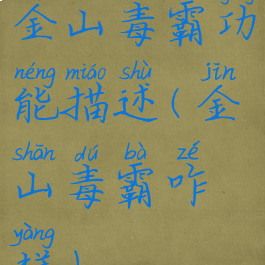 金山毒霸功
néng miáo shù jīn
能描述(金
shān dú bà zé
山毒霸咋
yàng
样)